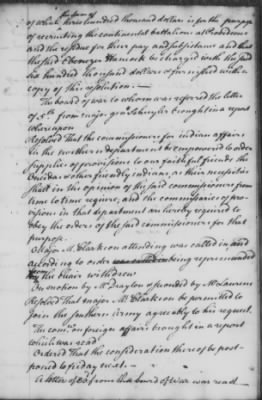 the sum of
of which three hundred thousand dollars is for the purpose
of recruiting the continental battalions at Providence
and the residue for their pay and subsistence and that
the said Ebenezer Hancock be charged with the said
six hundred thousand dollars & furnished with a
copy of this resolution.—
The board of war to whom was referred the letter
of 5th from major genl Schuyler brought in a report
whereupon
Resolved That the commissioners for indian affairs
in the northern department be empowered to order
supplies of provisions to our faithful friends the
Oneidas & other friendly indians, as their necessities
shall in the opinion of the said commissioners from
time to time require, and the commissaries of pro-
visions in that department are hereby required to
obey the orders of the said commissioners for that
purpose.
Major M. Clarkson attending was called in and
according to order being reprimanded
by the chair withdrew
On motion by Mr Drayton seconded by Mr Laurens
Resolved That major M. Clarkson be permitted to
join the southern army agreeably to his request.
The comee on foreign affairs brought in a report
which was read
Ordered That the consideration thereof be post-
poned to friday next.—
A letter of from the board of War was read—